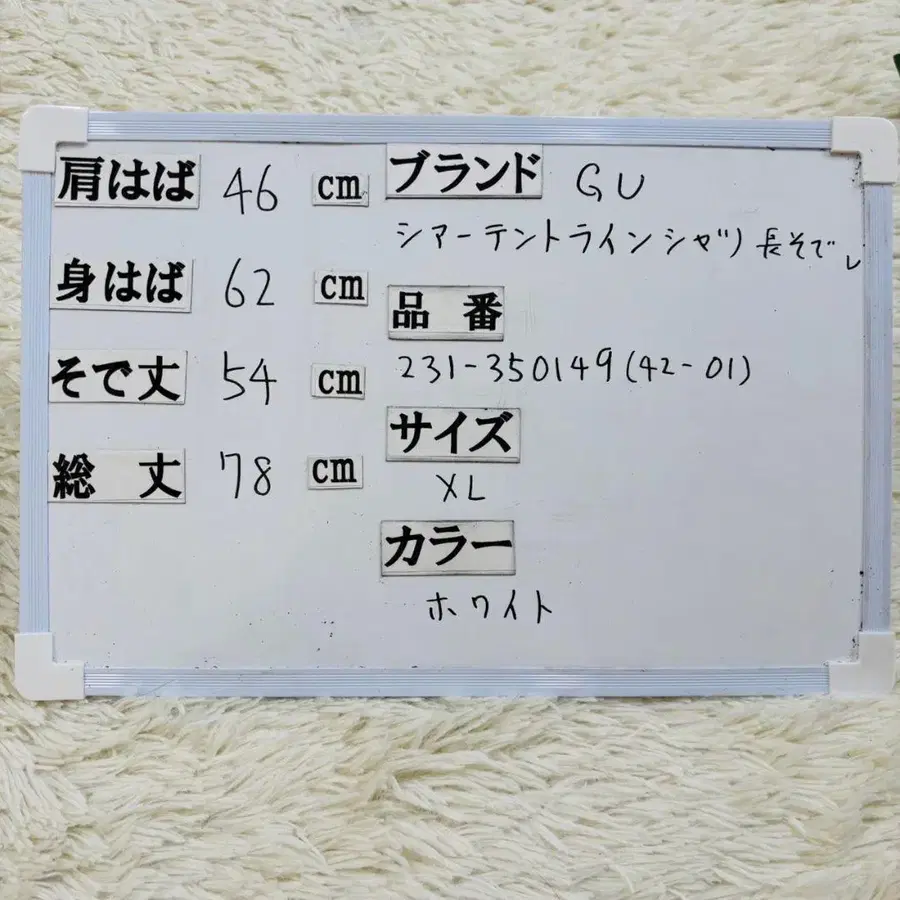 肩はば 46 cm
身はば 62 cm
そで丈 54 cm
総丈 78 cm
ブランド GU
シアーテントラインシャツ 長そで
品番
231-350149(42-01)
サイズ
XL
カラー
ホワイト